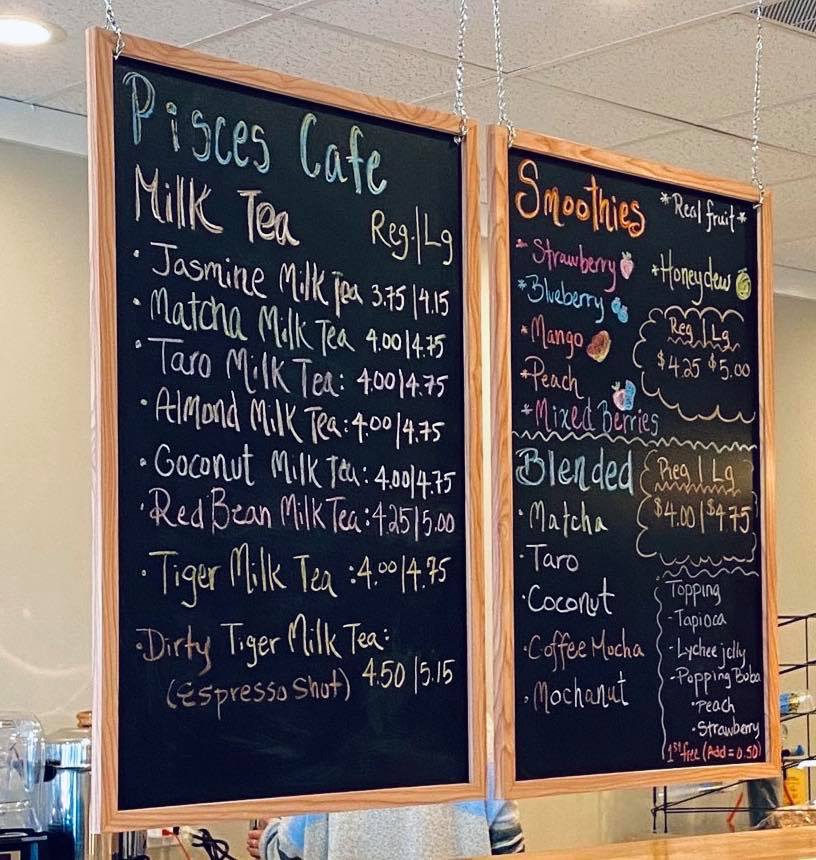 Pisces Cafe
Milk Tea
Reg.|Lg
· Jasmine Milk Tea 3.75|4.15
· Matcha Milk Tea 4.00|4.75
· Taro Milk Tea: 4.00|4.75
· Almond Milk Tea: 4.00|4.75
· Coconut Milk Tea: 4.00|4.75
· Red Bean Milk Tea: 4.25|5.00
· Tiger Milk Tea: 4.00|4.75
· Dirty Tiger Milk Tea:
(Espresso Shot) 4.50|5.15
Smoothies
*Real fruit*
* Strawberry
* Blueberry
* Mango
* Peach
* Mixed Berries
* Honeydew
Reg | Lg
$4.25 $5.00
Blended
Reg | Lg
$4.00 | $4.75
· Matcha
· Taro
· Coconut
· Coffee Mocha
· Mochanut
Topping
- Tapioca
- Lychee jelly
- Popping Boba
· Peach
· Strawberry
1st free (Add = 0.50)